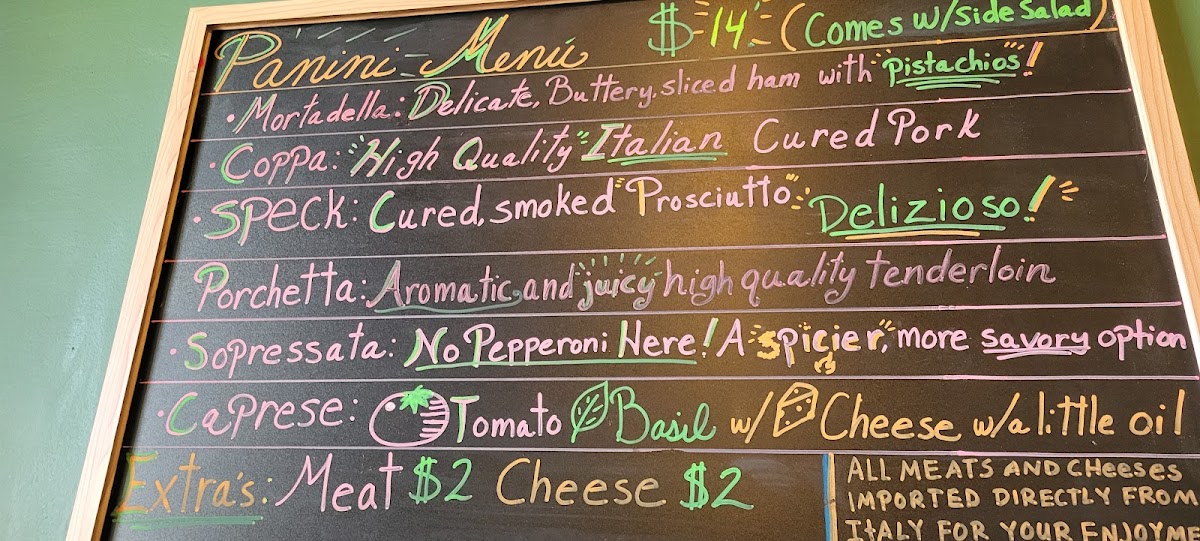 Panini Menu $14 (Comes w/Side Salad)
• Mortadella: Delicate, Buttery. sliced ham with "Pistachios"!
• Coppa: "High Quality" Italian Cured Pork
• Speck: Cured, smoked "Prosciutto" Delizioso!
Porchetta: Aromatic, and juicy high quality tenderloin
• Sopressata: No Pepperoni Here! A "spicier", more savory option
• Caprese: Tomato Basil w/ Cheese w/a little oil
Extra's: Meat $2 Cheese $2
ALL MEATS AND CHEESES
IMPORTED DIRECTLY FROM
ITALY FOR YOUR ENJOYME